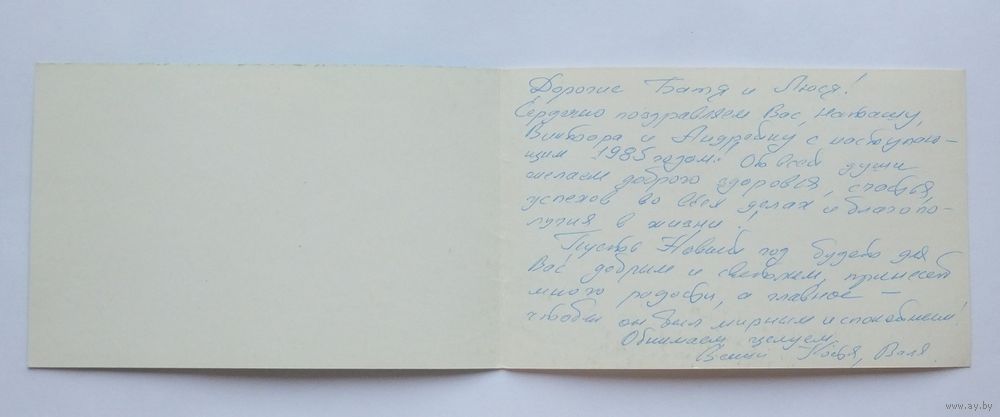 Дорогие Батя и Люся!
Сердечно поздравляем Вас, Наташу,
Виктора и Андрейку с наступаю-
щим 1985 годом. От всей души
желаем доброго здоровья, счастья,
успехов во всех делах и благопо-
лучия в жизни!
Пусть Новый год будет для
Вас добрым и светлым, принесет
много радости, а главное –
чтобы он был мирным и спокойным!
Обнимаем, целуем.
Ваши Костя, Валя.
www.ay.by